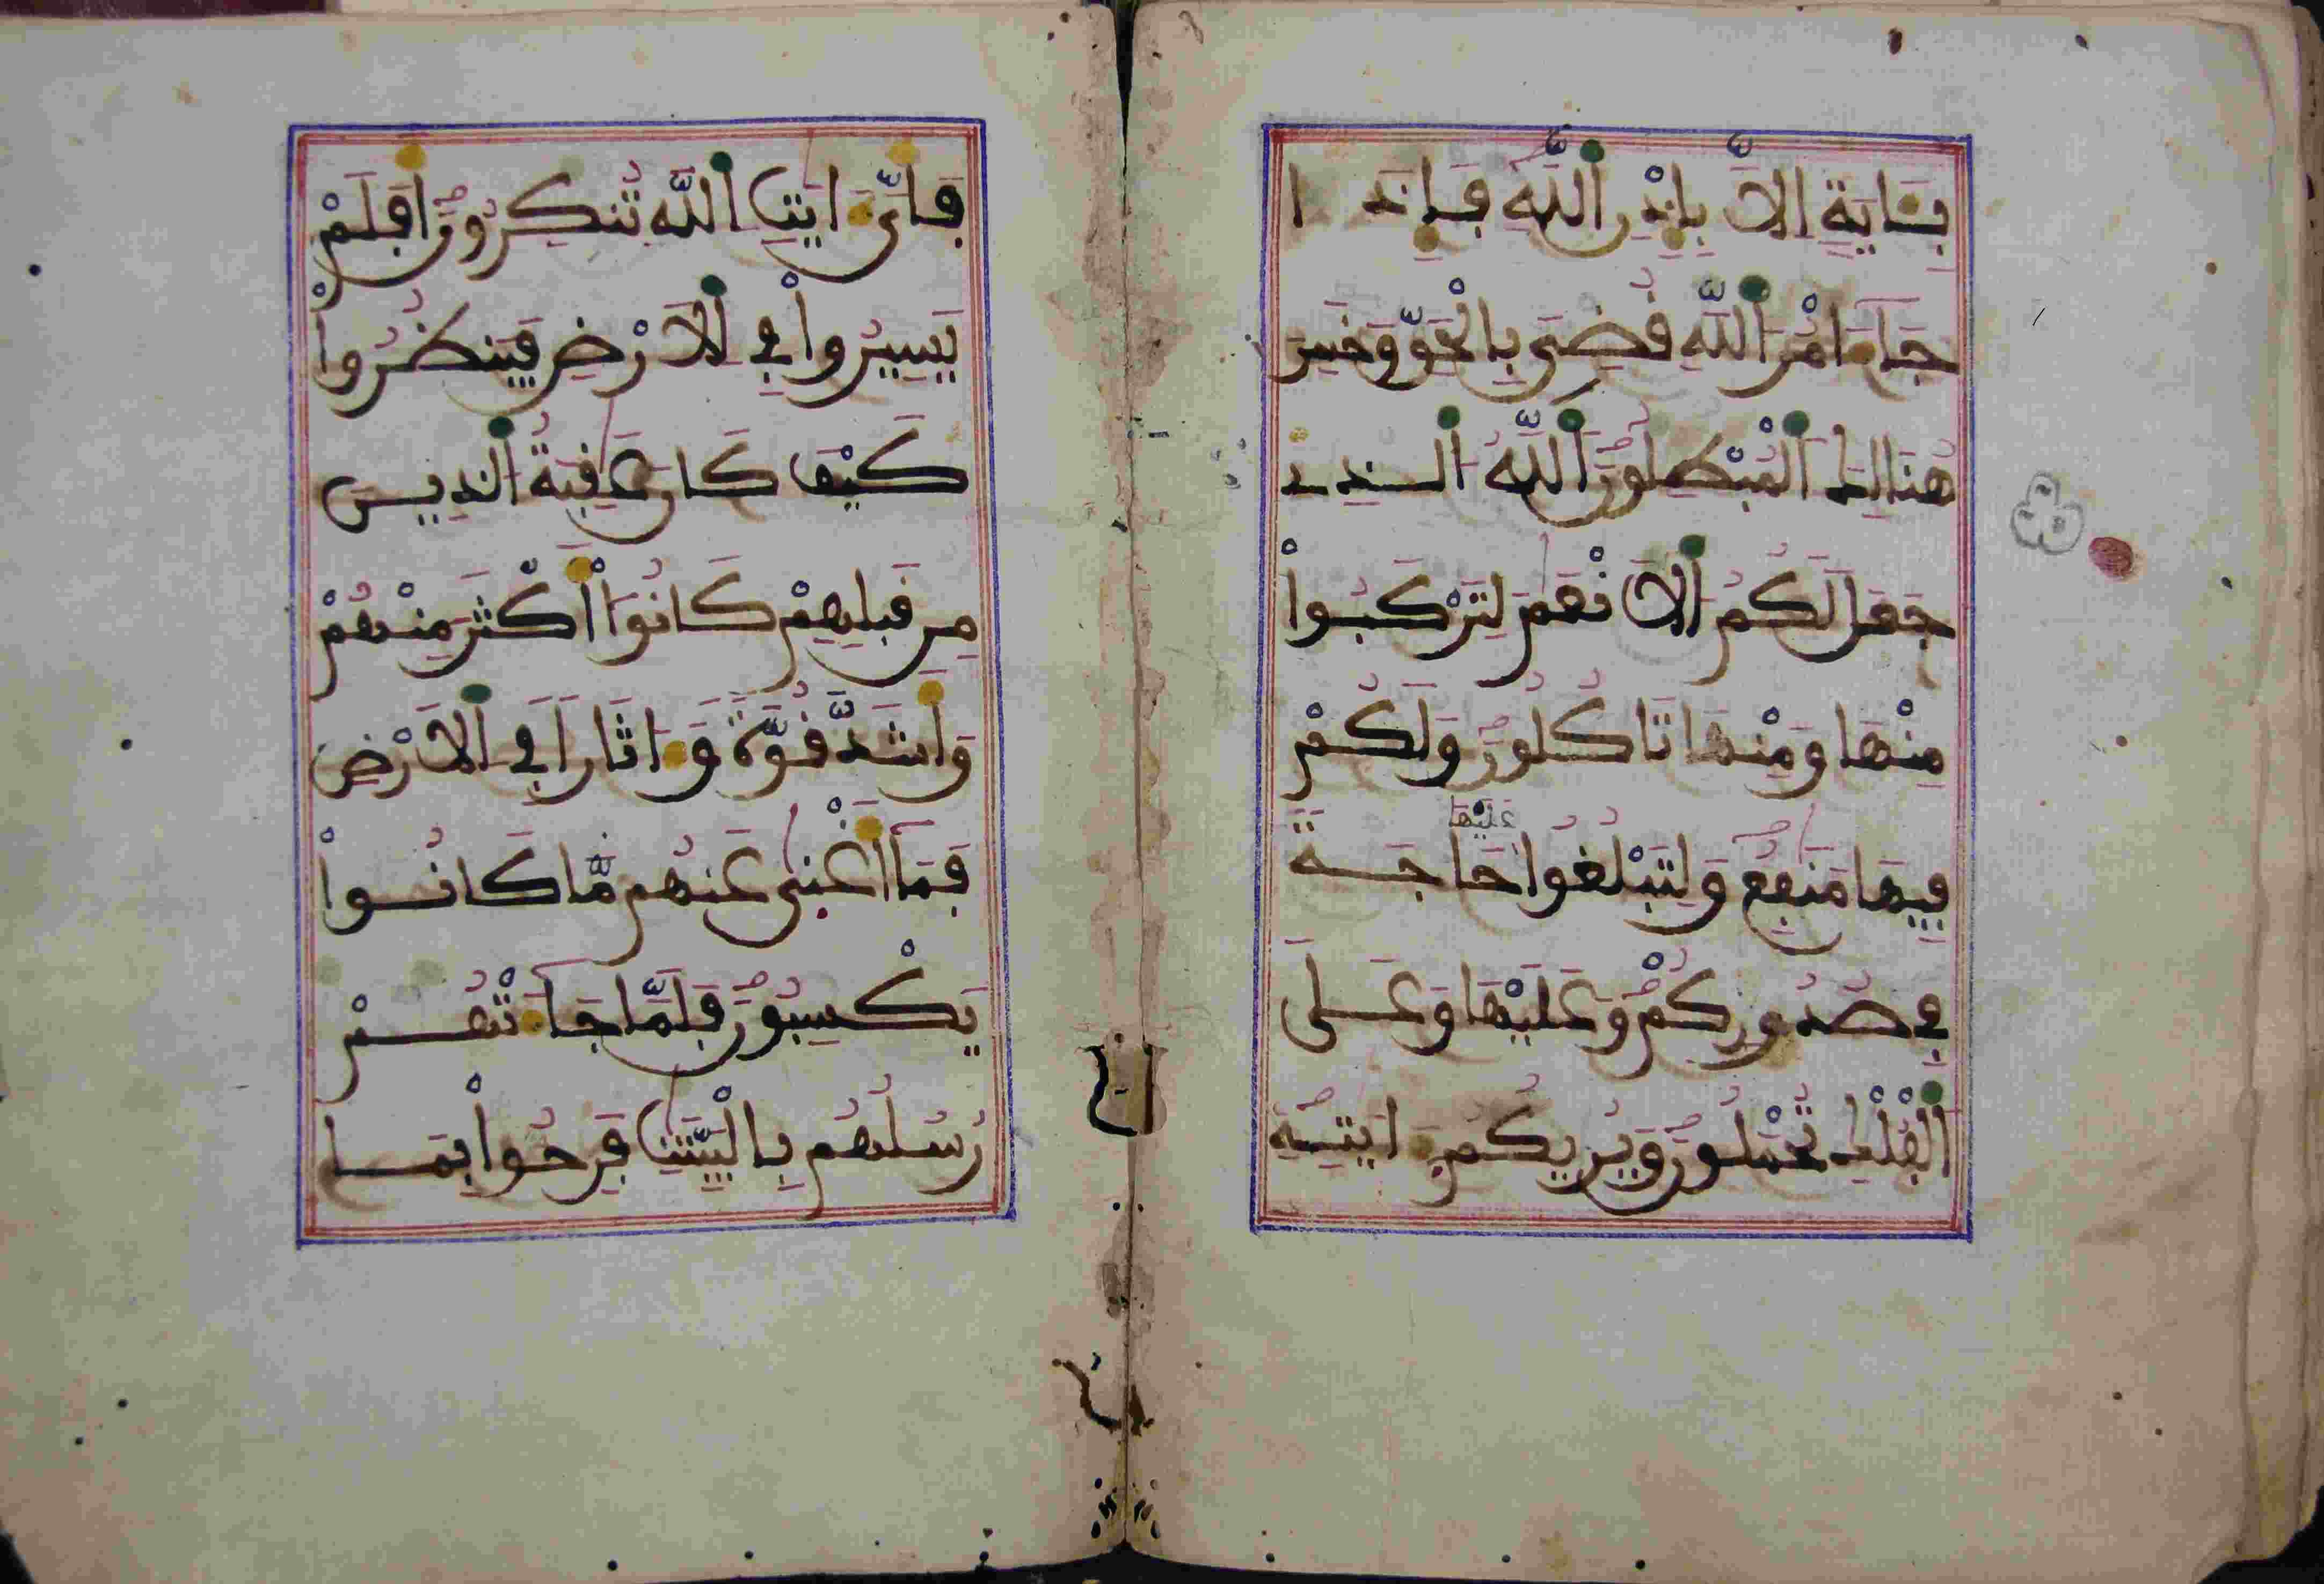 بِـَٔايَةٍ اِلَّا بِإِذْنِ اِ۬للَّهِ فَإِذَا
جَآءَ امْرُ اُ۬للَّهِ قُضِيَ بِالْحَقِّ وَخَسِرَ
هُنَالِكَ اَ۬لْمُبْطِلُونَ اَ۬للَّهُ اُ۬لذِے
جَعَلَ لَكُمُ اُ۬لَانْعَٰمَ لِتَرْكَبُواْ
مِنْهَا وَمِنْهَا تَاكُلُونَ وَلَكُمْ
فِيهَا مَنَٰفِعُ وَلِتَبْلُغُواْ عَلَيْهَا حَاجَةً
فِے صُدُورِكُمْ وَعَلَيْهَا وَعَلَى
اَ۬لْفُلْكِ تُحْمَلُونَ وَيُرِيكُمُ ءَايَٰتِهِ
فَأَيَّ ءَايَٰتِ اِ۬للَّهِ تُنكِرُونَ أَفَلَمْ
يَسِيرُواْ فِے اِ۬لَارْضِ فَيَنظُرُواْ
كَيْفَ كَانَ عَٰقِبَةُ اُ۬لذِينَ
مِن قَبْلِهِمْ كَانُوٓاْ أَكْثَرَ مِنْهُمْ
وَأَشَدَّ قُوَّةً وَءَاثَاراً فِے اِ۬لَارْضِ
فَمَآ أَغْنَىٰ عَنْهُم مَّا كَانُواْ
يَكْسِبُونَ فَلَمَّا جَآءَتْهُمْ
رُسُلُهُم بِالْبَيِّنَٰتِ فَرِحُواْ بِمَا